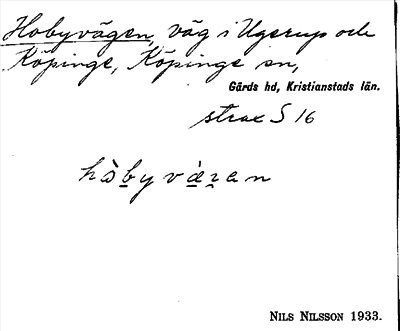 Hobyvägen, väg i Ugerup och
Köpinge, Köpinge sn,
Gärds hd, Kristianstads län.
strax S 16
hòb̲y vä̀ga̲n
NILS NILSSON 1933.